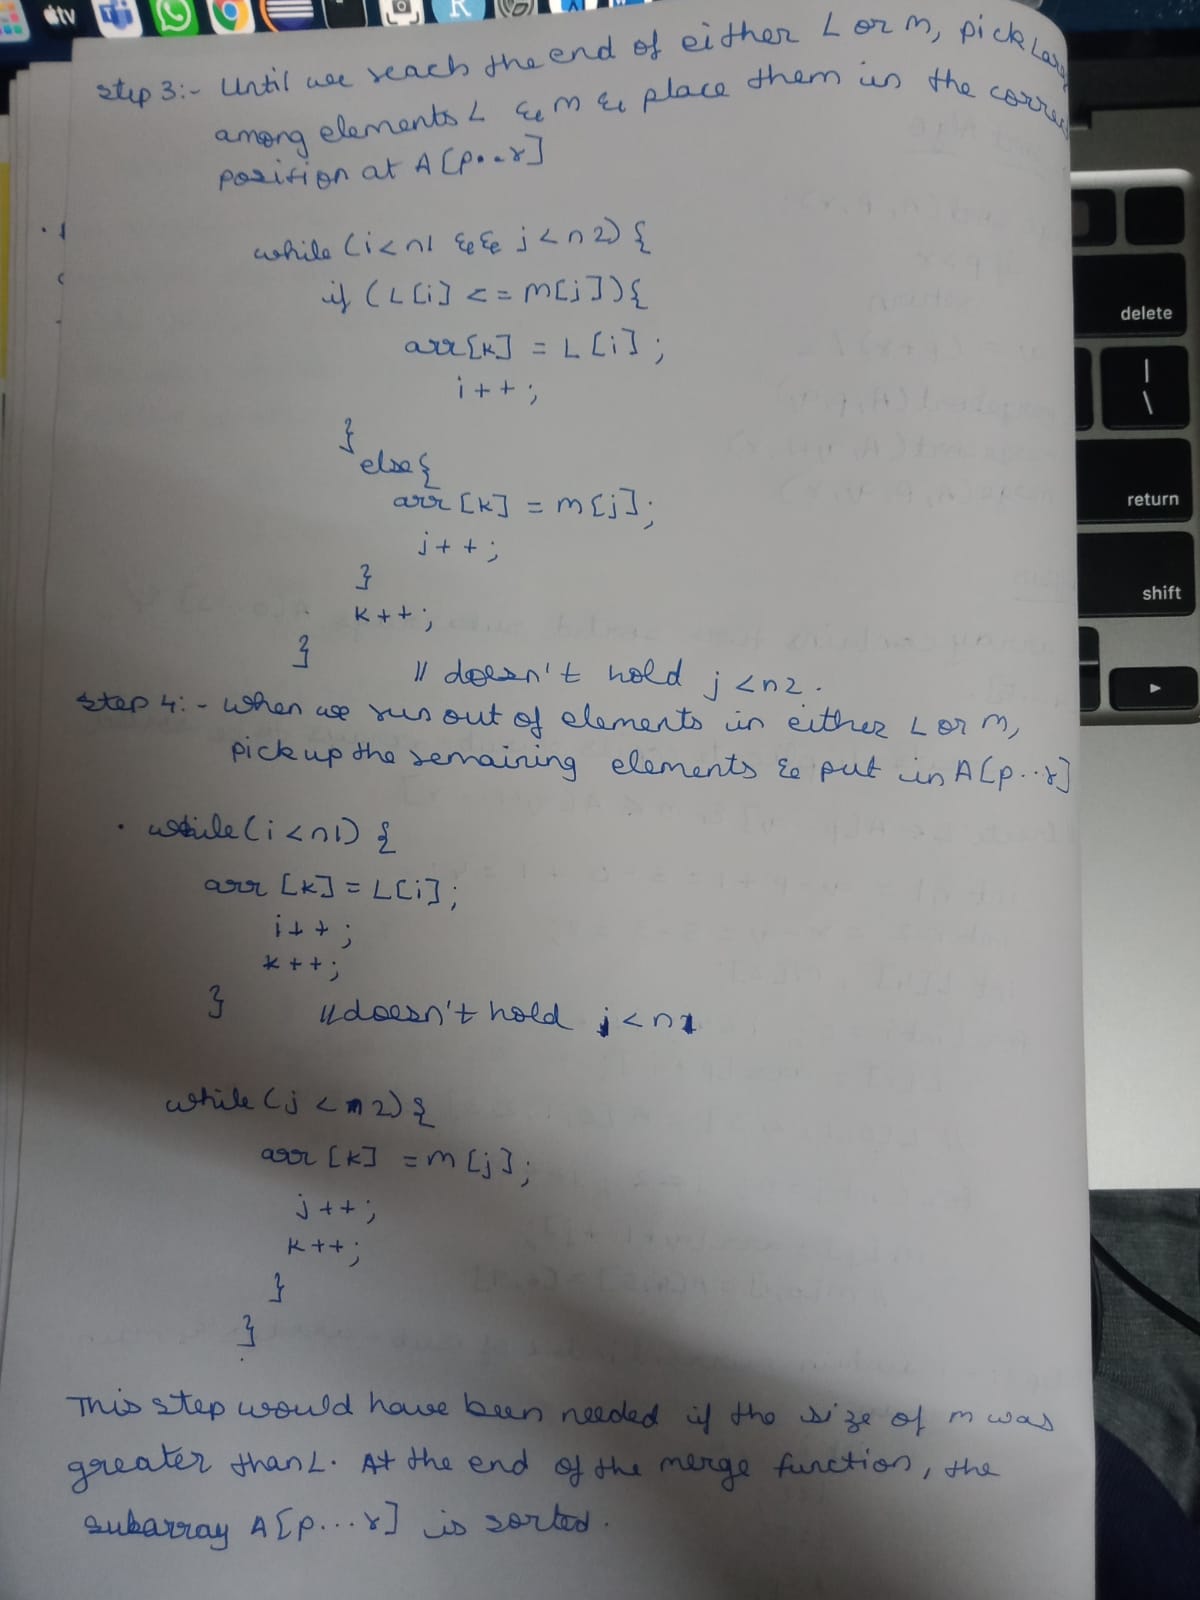 step 3:- Until we reach the end of either L or M, pick
among elements L & M & place them in the
position at A[p..r]
while (i<n1 && j<n2) {
if (L[i] <= M[j]){
arr[k] = L[i];
i++;
}
else{
arr[k] = M[j];
j++;
}
k++;
}
// doesn't hold j<n2.
step 4:- When we run out of elements in either L or M,
pick up the remaining elements & put in A[p..r]
. while(i<n1) {
arr[k]=L[i];
i++;
k++;
}
// doesn't hold j<n1
while(j<n2){
arr[k] =M[j];
j++;
k++;
}
}
This step would have been needed if the size of M was
greater than L. At the end of the merge function, the
subarray A[p...r] is sorted.
tv
delete
|
\
return
shift